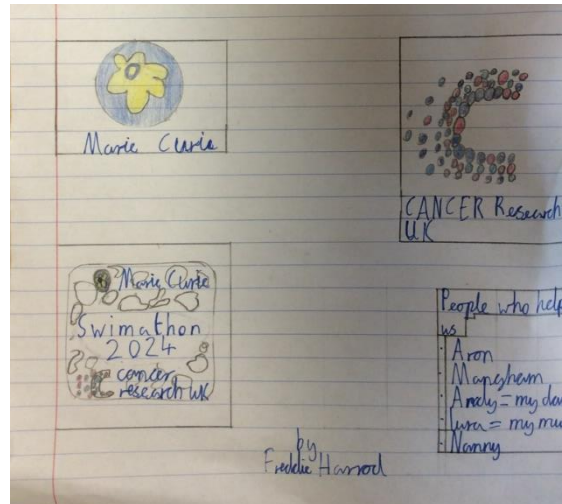 Marie Curie
CANCER Research
UK
Marie Curie
Swimathon
2024
cancer
research UK
People who help
us
Aron
Mangham
Andy = my da
Lura = my mu
Nanny
by
Freddie Harrod